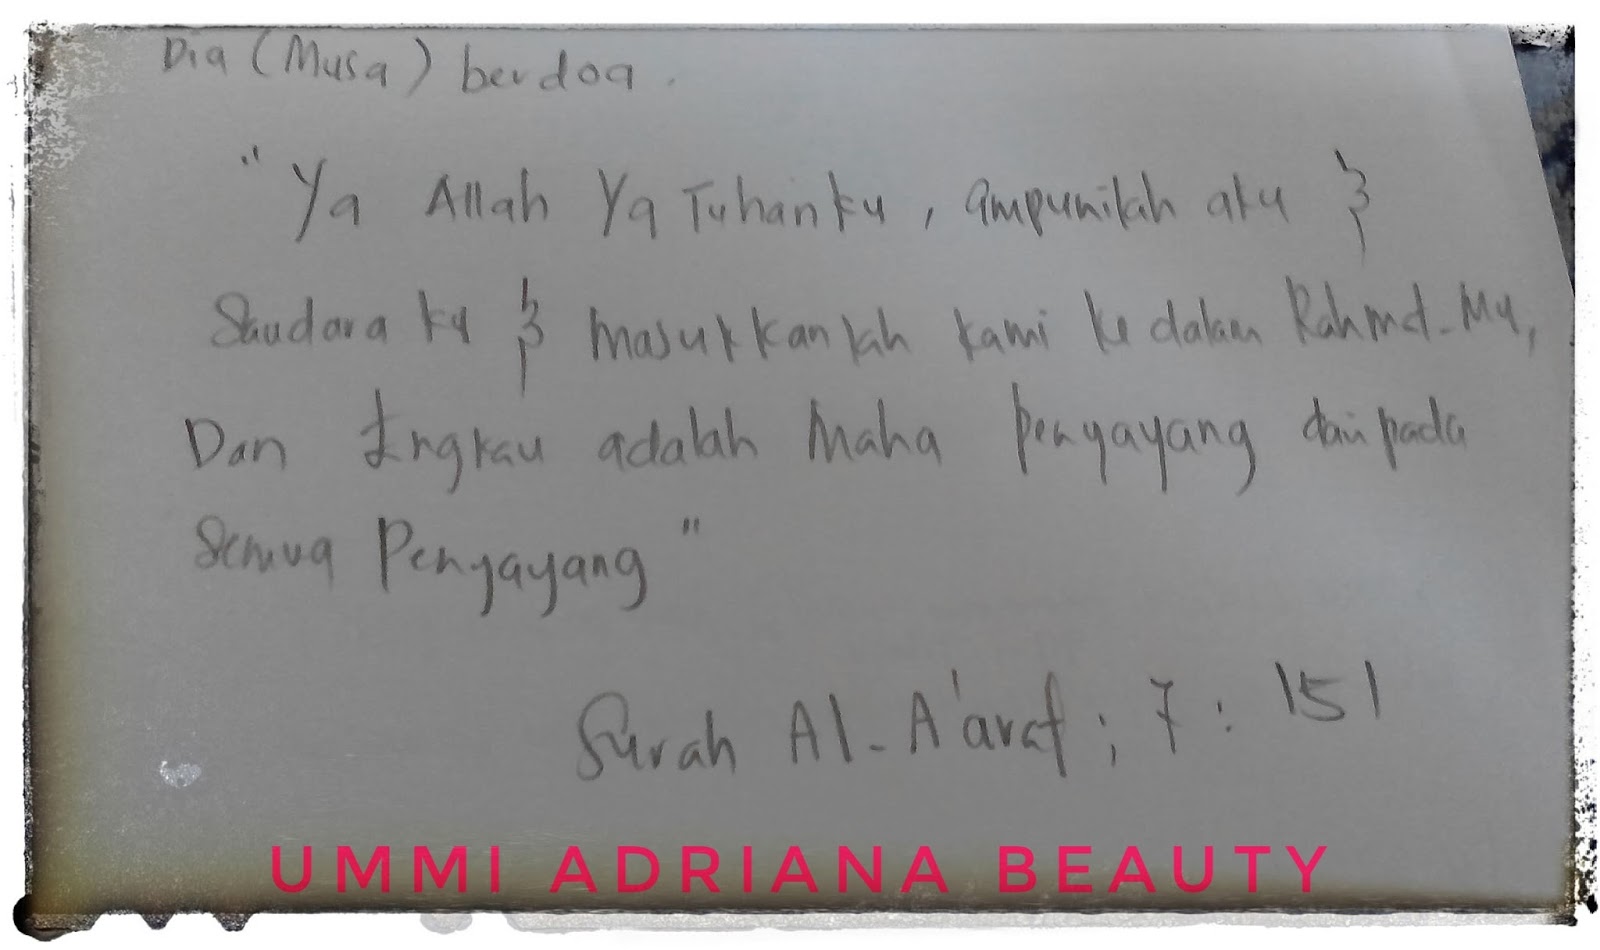 Dia (Musa) berdoa.
"Ya Allah Ya Tuhanku, ampunilah aku &
Saudara ku & Masukkanlah kami ke dalam Rahmat-Mu,
Dan Engkau adalah Maha Penyayang daripada
Semua Penyayang"
Surah Al-A'araf; 7: 151
UMMI ADRIANA BEAUTY